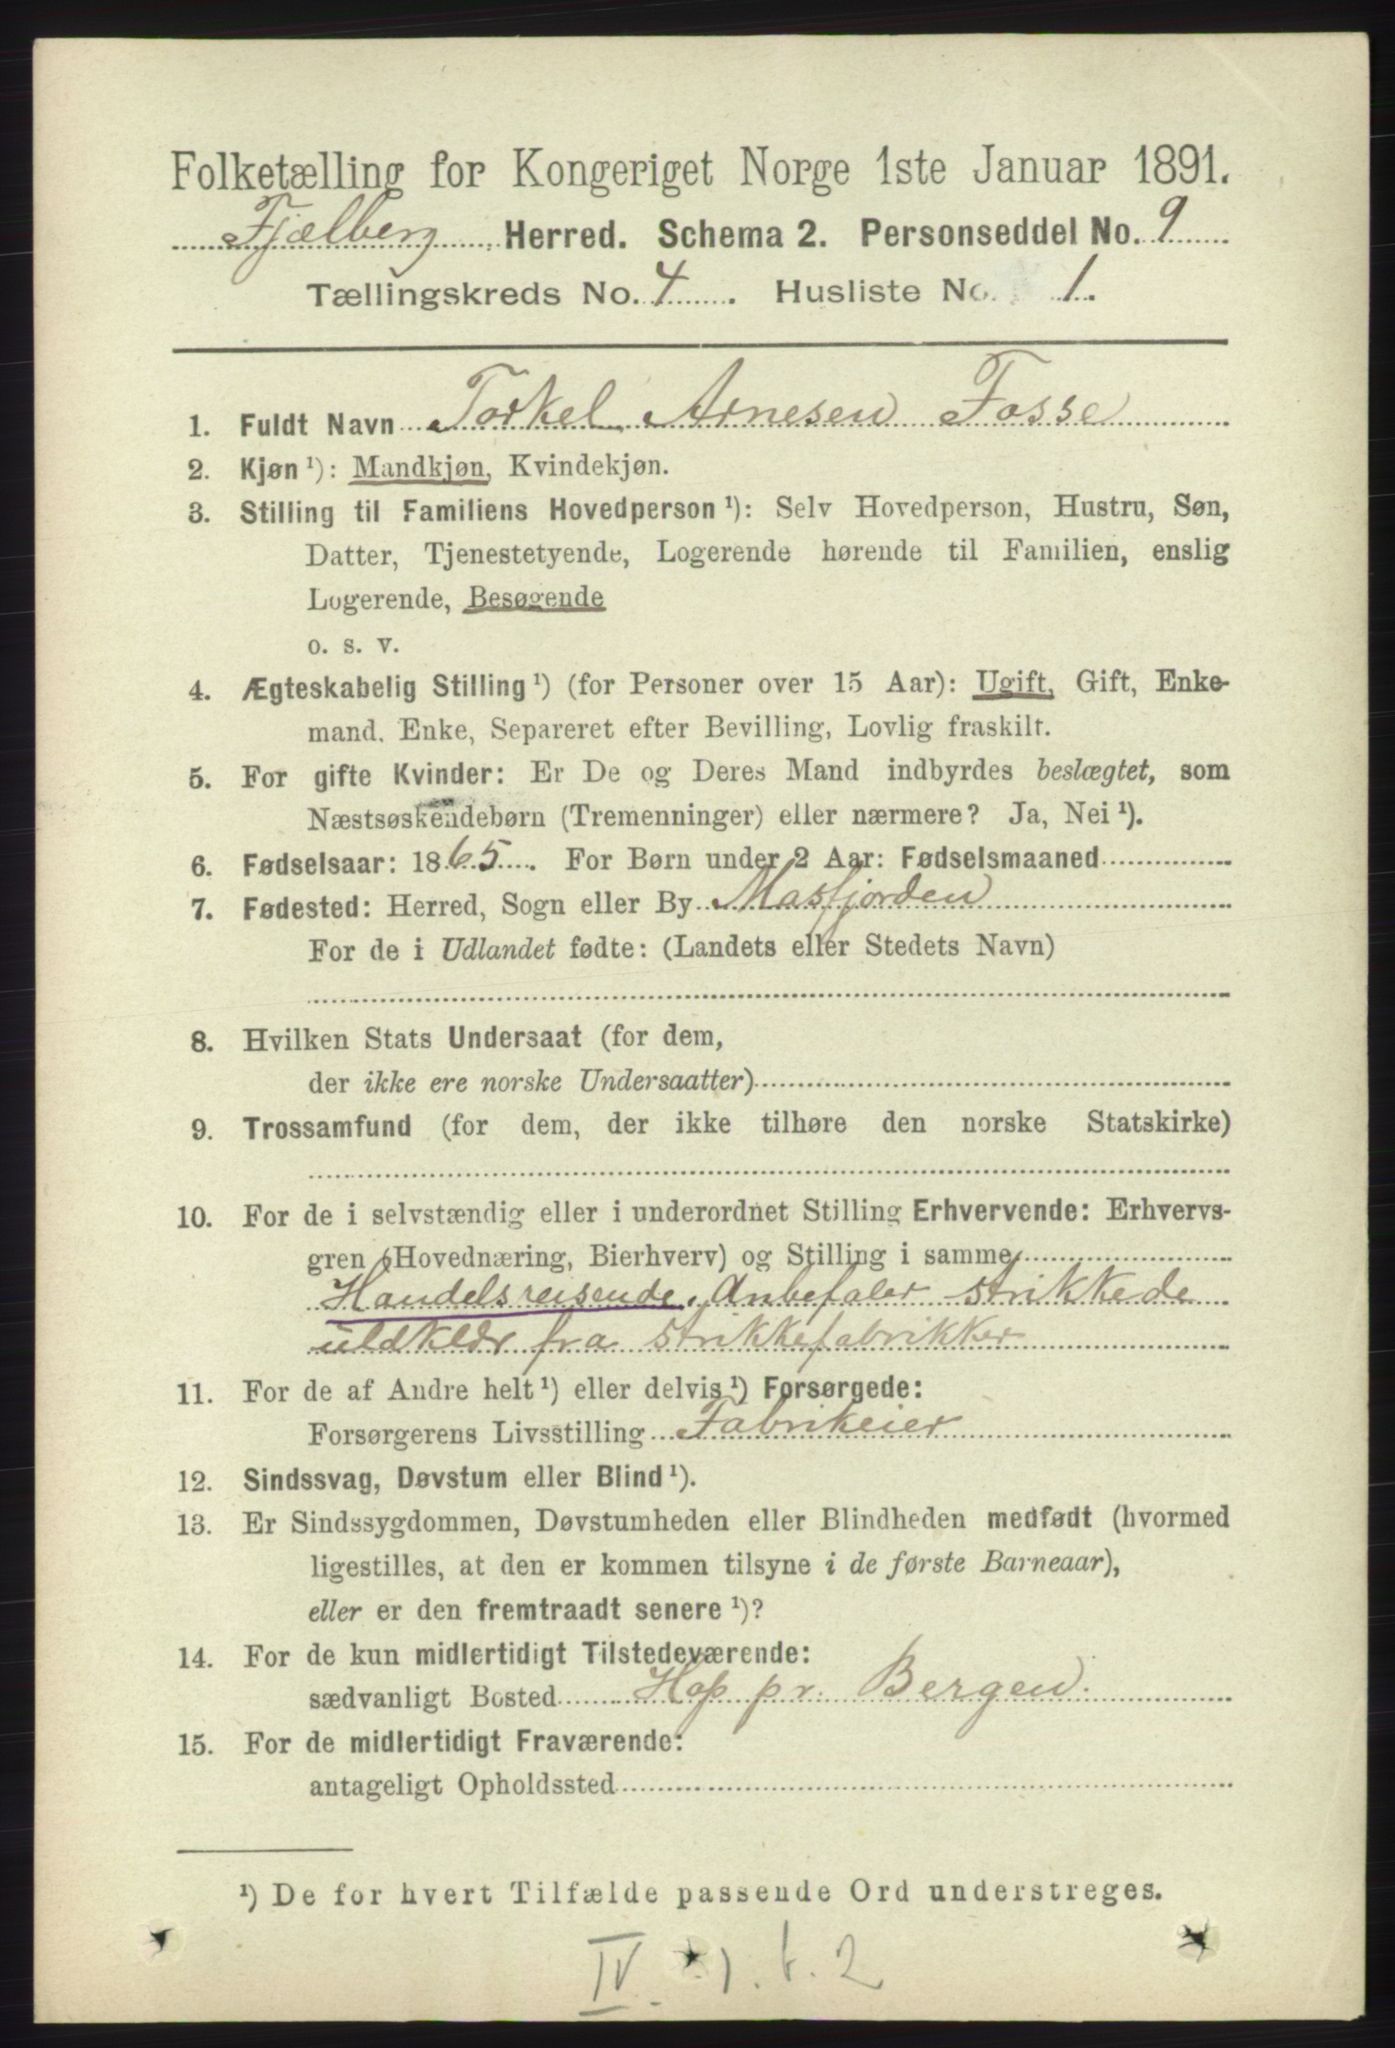 Folketælling for Kongeriget Norge 1ste Januar 1891.
Fjælberg Herred. Schema 2. Personseddel No. 9
Tællingskreds No. 4. Husliste No. 1.
1. Fuldt Navn Torkel Arnesen Fosse
2. Kjøn ¹): Mandkjøn, Kvindekjøn.
3. Stilling til Familiens Hovedperson ¹): Selv Hovedperson, Hustru, Søn,
Datter, Tjenestetyende, Logerende hørende til Familien, enslig
Logerende, Besøgende
o. s. v.
4. Ægteskabelig Stilling ¹) (for Personer over 15 Aar): Ugift, Gift, Enke-
mand, Enke, Separeret efter Bevilling, Lovlig fraskilt.
5. For gifte Kvinder: Er De og Deres Mand indbyrdes beslægtet, som
Næstsøskendebørn (Tremenninger) eller nærmere? Ja, Nei ¹).
6. Fødselsaar: 1865. For Børn under 2 Aar: Fødselsmaaned
7. Fødested: Herred, Sogn eller By Masfjorden
For de i Udlandet fødte: (Landets eller Stedets Navn)
8. Hvilken Stats Undersaat (for dem,
der ikke ere norske Undersaatter)
9. Trossamfund (for dem, der ikke tilhøre den norske Statskirke)
10. For de i selvstændig eller i underordnet Stilling Erhvervende: Erhvervs-
gren (Hovednæring, Bierhverv) og Stilling i samme
Handelsreisende. Anbefaler strikkede
uldklær fra strikkefabrikker
11. For de af Andre helt ¹) eller delvis ¹) Forsørgede:
Forsørgerens Livsstilling Fabrikeier
12. Sindssvag, Døvstum eller Blind ¹).
13. Er Sindssygdommen, Døvstumheden eller Blindheden medfødt (hvormed
ligestilles, at den er kommen tilsyne i de første Barneaar),
eller er den fremtraadt senere ¹)?
14. For de kun midlertidigt Tilstedeværende:
sædvanligt Bosted Hop pr. Bergen.
15. For de midlertidigt Fraværende:
antageligt Opholdssted
¹) De for hvert Tilfælde passende Ord understreges.
IV. 1. t. 2